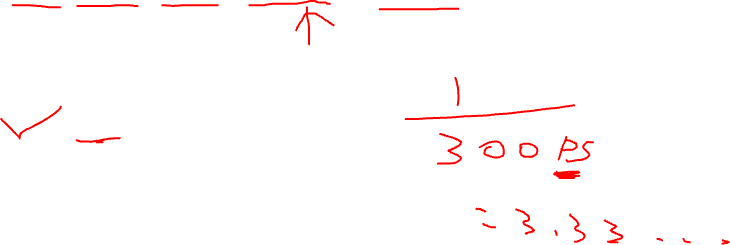 1
300 ps
= 3.33 ...